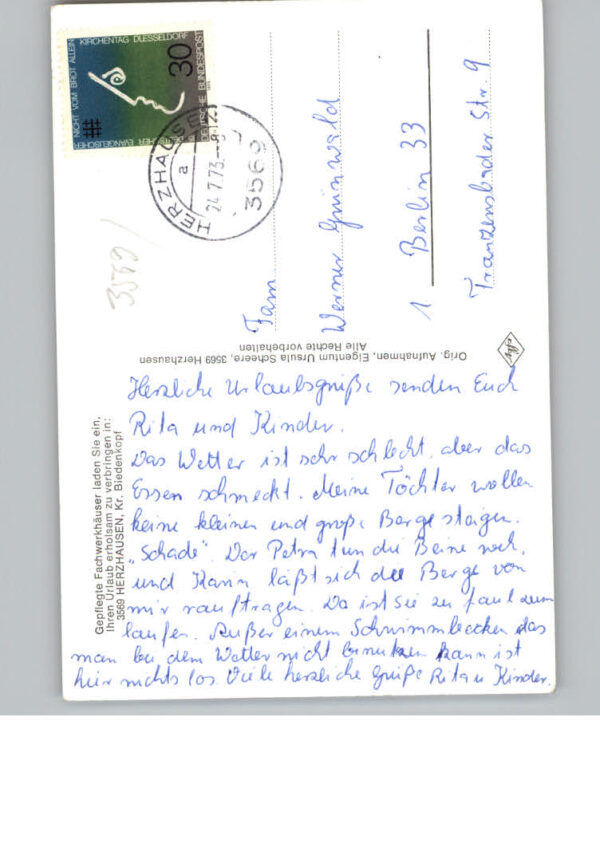 NICHT VOM BROT ALLEIN
KIRCHENTAG DUESSELDORF
30
DEUTSCHE BUNDESPOST
DEUTSCHER EVANGELISCHER
HERZHAUSEN
a
24.7.73
3569
3569
Fam
Werner Grünwald
1 Berlin 33
Franzensbader Str. 9
Orig. Aufnahmen, Eigentum Ursula Scheere, 3569 Herzhausen
Alle Rechte vorbehalten
Gepflegte Fachwerkhäuser laden Sie ein,
Ihren Urlaub erholsam zu verbringen in:
3569 HERZHAUSEN, Kr. Biedenkopf
Herzliche Urlaubsgrüße senden Euch
Rita und Kinder.
Das Wetter ist sehr schlecht, aber das
Essen schmeckt. Meine Töchter wollen
keine kleinen und große Berge steigen.
„Schade“. Der Petra tun die Beine weh,
und Karin läßt sich die Berge von
mir rauftragen. Da ist sie zu faul zum
laufen. Außer einem Schwimmbecken das
man bei dem Wetter nicht benutzen kann ist
hier nichts los. Viele herzliche Grüße Rita u Kinder.